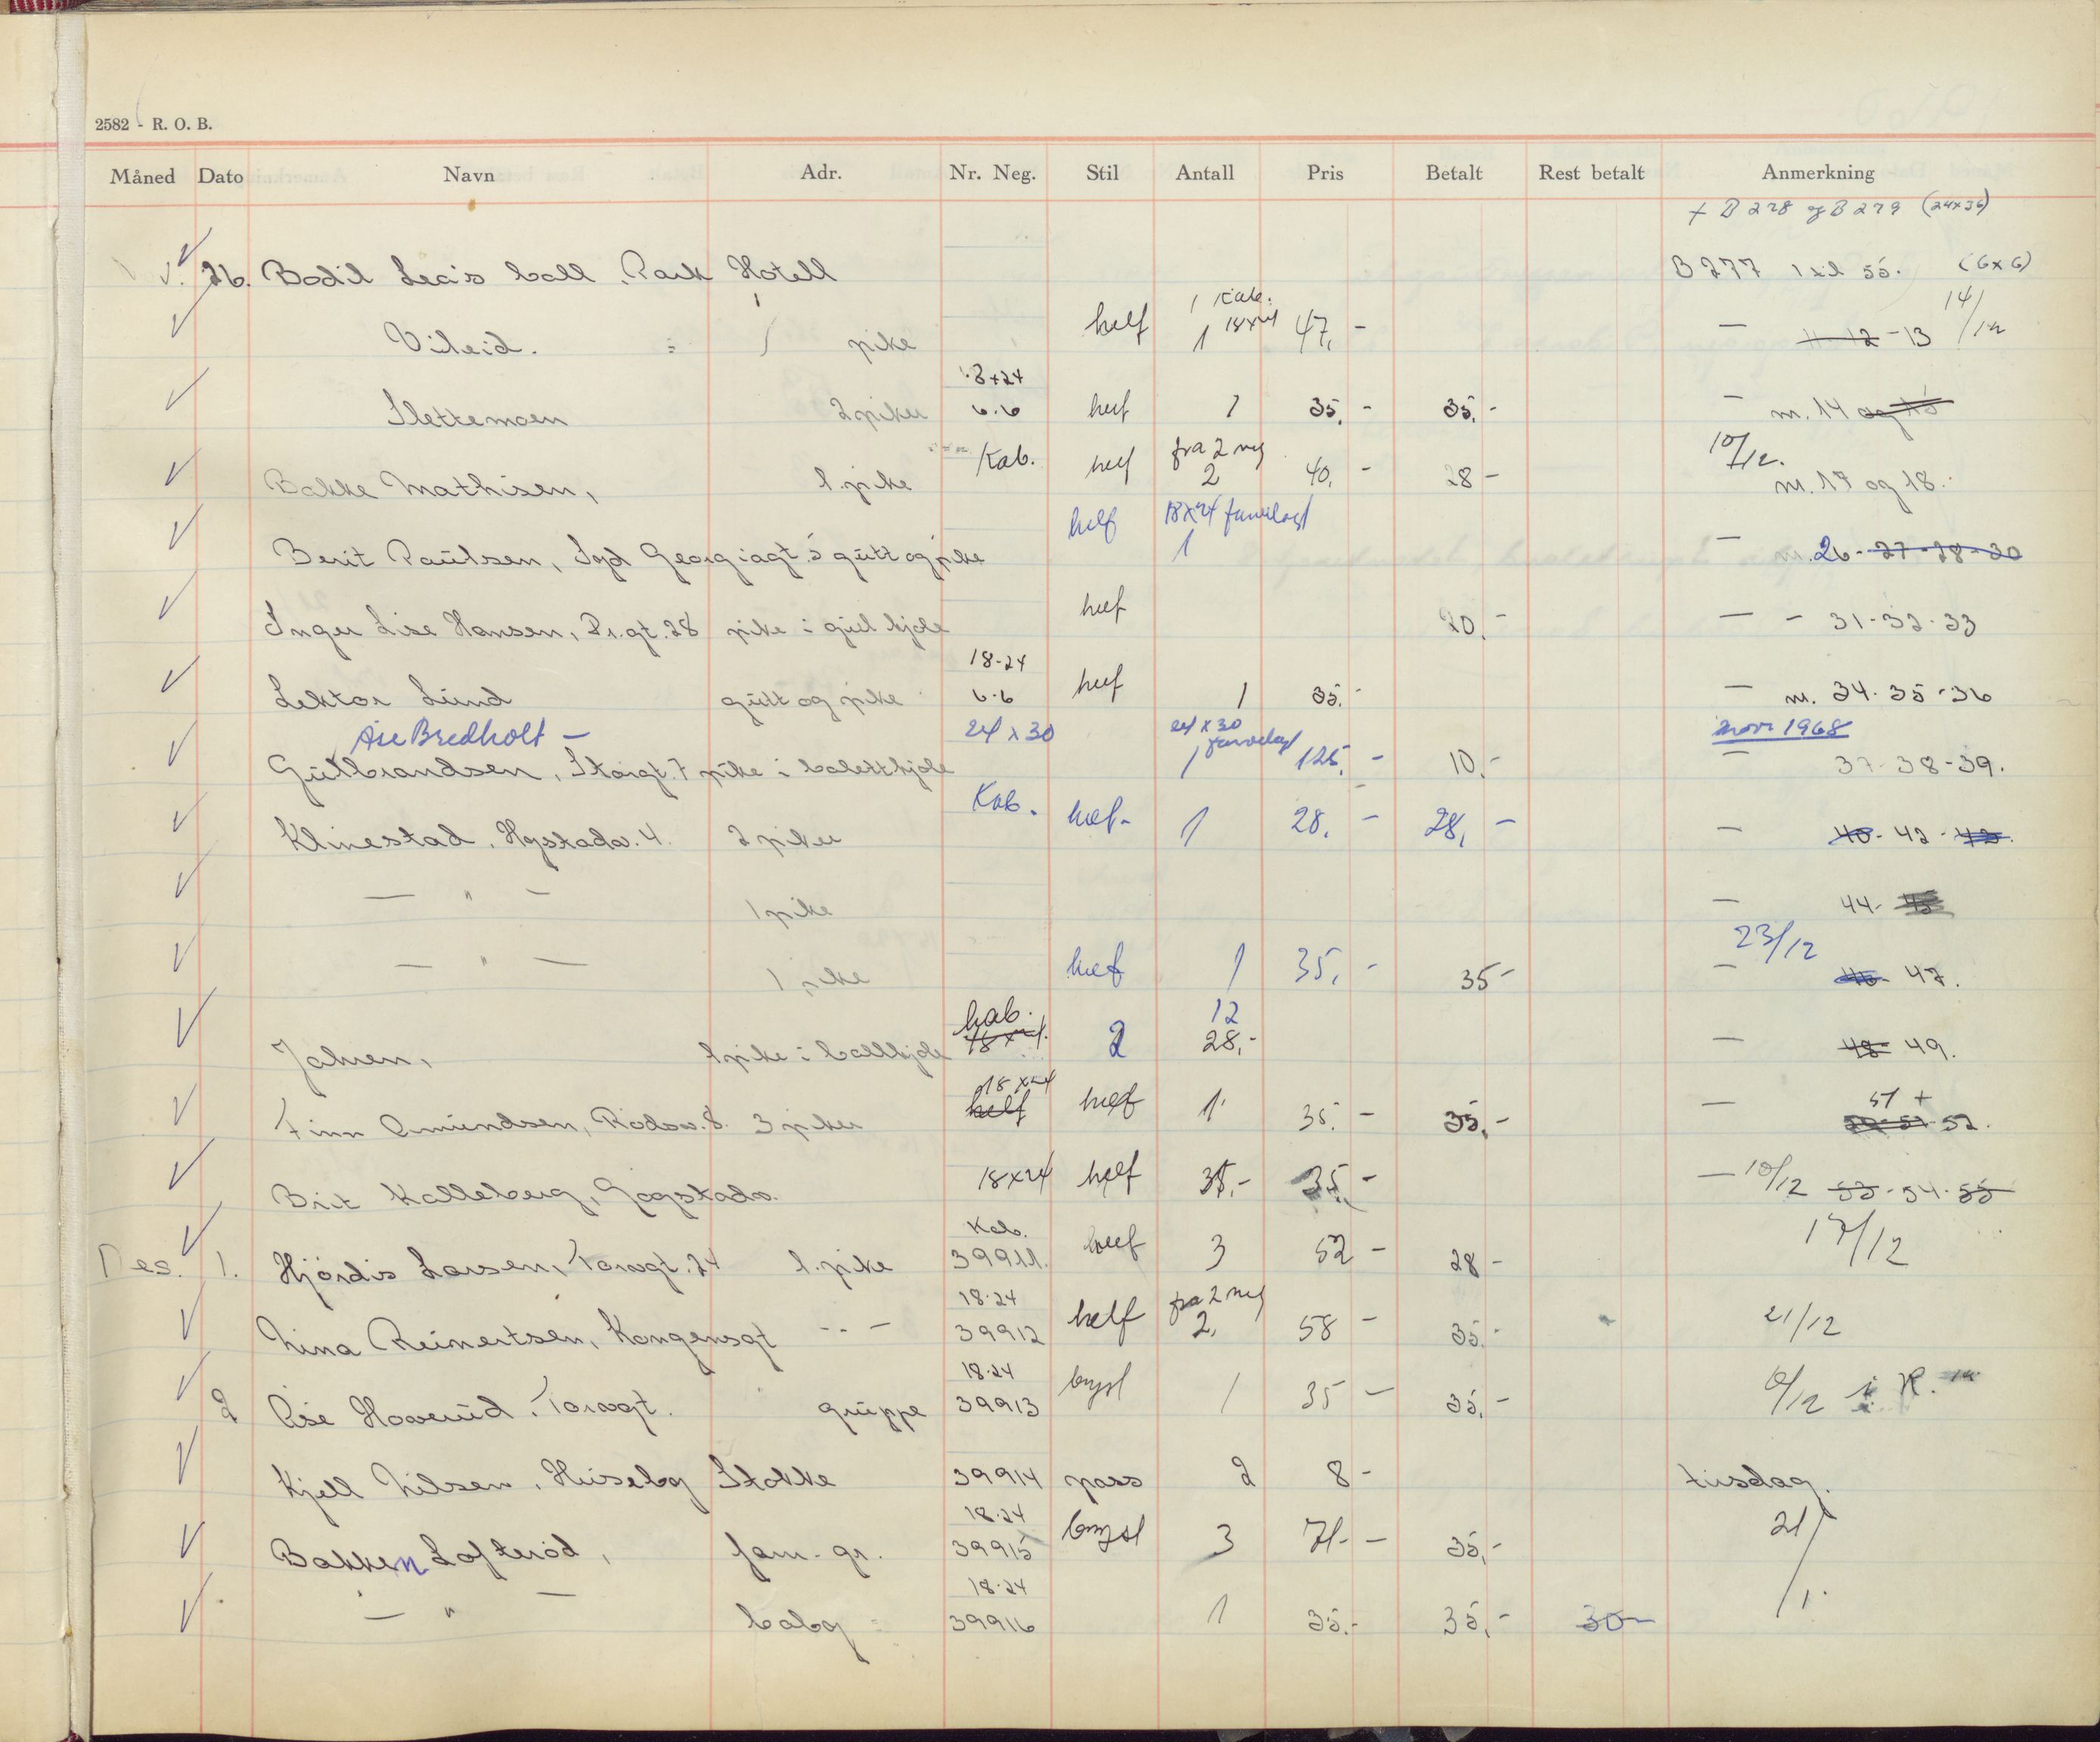 2582 - R. O. B.
Måned Dato Navn Adr. Nr. Neg. Stil Antall Pris Betalt Rest betalt Anmerkning
+ B 278 og B 279 (24x36)
26. Bodil Lea's ball, Park Hotell B 277 1 til 55. (6x6)
1 Kab. 14/12
pike helf 1 18x24 47,- — 11-12-13
18x24
Slettemoen 2 piker 6.6 helf 1 35,- 35,- — m. 14 og 15
fra 2 neg 10/12.
Bakke Mathisen, 1. pike Kab. helf 2 40,- 28- m. 17 og 18.
helf 18x24 farvelagt
Berit Paulsen, Syd Georgiagt. 5 gutt og pike 1 — m. 26-27-28-30
Inger Lise Hansen, Pr.gt. 28 pike i gul kjole helf 20,- — - 31-32-33
18-24
Lektor Lund gutt og pike 6.6 helf 1 35,- — m. 34-35-36
Åse Bredholt — 24x30 24x30 farvelagt nov 1968
Gulbrandsen, Storgt. 7 pike i ballettkjole 1 125,- 10,- — 37-38-39.
Klinestad, Hystadv. 4. 2 piker Kab. helf- 1 28,- 28,- — 40-42-43.
— " — 1 pike — 44-45
23/12
— " — 1 pike helf 1 35,- 35- — 46-47.
kab. 12
Jahren, 1 pike i ballkjole 18x24. 2 28,- — 48-49.
18x24 51 +
Finn Amundsen, Rødsv. 8. 3 piker helf helf 1 35,- 35,- — 52.
Brit Kalleberg, Gogstadv. 18x24 helf 35,- 35,- — 10/12 53-54-55
Kab. 17/12
Des. 1. Hjørdis Larsen, Torvgt. 24 1. pike 39911. helf 3 52- 28-
18-24 fra 2 neg
Nina Reinertsen, Kongensgt - " - 39912 helf 2, 58- 35,- 21/12
18-24
2 Åse Haverud, Torvgt. gruppe 39913 byst 1 35- 35,- 6/12
Kjell Nilsen, Huseby Stokke 39914 pass 2 8- tirsdag.
18-24
Bakken Lofterød, fam. gr. 39915 byst 3 71,- 35,- 21/1.
18-24
— " — baby 39916 1 35,- 35,- 30-